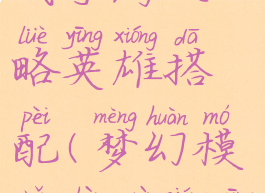 lüè yīng xióng dā
略英雄搭
pèi mèng huàn mó
配(梦幻模